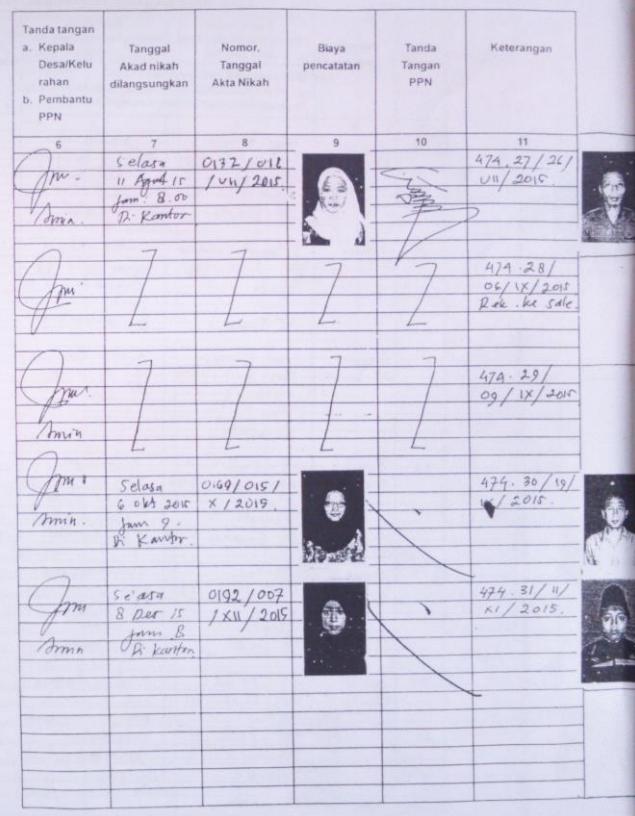 Tanda tangan
a. Kepala
Desa/Kelu
rahan
b. Pembantu
PPN
Tanggal
Akad nikah
dilangsungkan
Nomor,
Tanggal
Akta Nikah
Biaya
pencatatan
Tanda
Tangan
PPN
Keterangan
6 7 8 9 10 11
Amin.
Selasa
11 Agut 15
jam 8.00
Di Kantor
0172/018
/VII/2015.
474.27/26/
VII/2015.
474.28/
06/IX/2015
Rek. ke Sale.
Amin
474.29/
09/IX/2015
Amin.
Selasa
6 okt 2015
jam 9.
Di Kantor.
0169/015/
X/2015.
474.30/19/
/2015.
Amin
Selasa
8 Des 15
jam 8
Di kantor
0192/007
/XII/2015
474.31/11/
XI/2015.